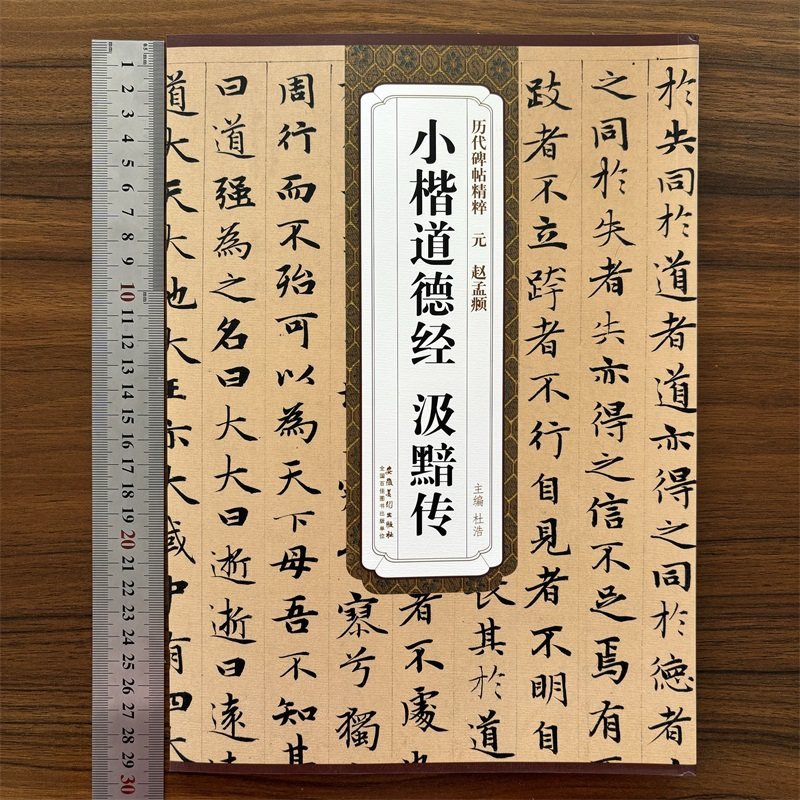 於失同於道者道亦得之同於德者
之同於失者失亦得之信不足焉有
跂者不立跨者不行自見者不明自
历代碑帖精粹 元 赵孟頫
小楷道德经 汲黯传
主编 杜浩
安徽美术出版社
全国百佳图书出版单位
長其於道
者不處也
寥兮獨
周行而不殆可以為天下母吾不知其
曰道强為之名曰大大曰逝逝曰遠遠
道大天大地大王亦大域中有四大
1
2
3
4
5
6
7
8
9
10
11
12
13
14
15
16
17
18
19
20
21
22
23
24
25
26
27
28
29
30